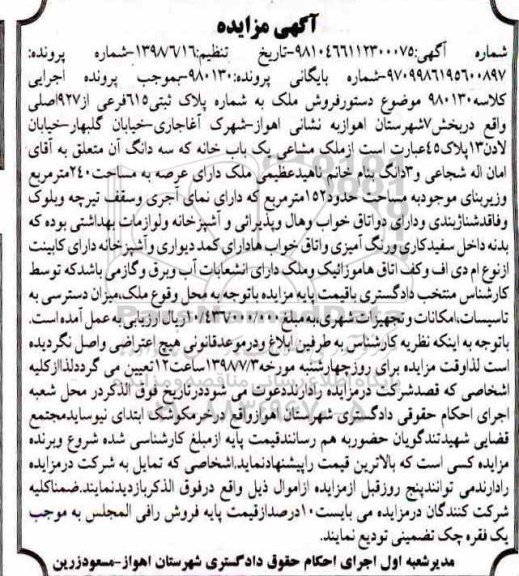 آگهی مزایده
شماره آگهی:۹۸۱۰۴۶۶۱۱۲۳۰۰۰۷۵-تاریخ تنظیم:۱۳۹۸/۶/۱۶-شماره پرونده:
۹۷۰۹۹۸۶۱۹۵۶۰۰۸۹۷-شماره بایگانی پرونده:۹۸۰۱۳۰-بموجب پرونده اجرایی
کلاسه۹۸۰۱۳۰ موضوع دستورفروش ملک به شماره پلاک ثبتی۶۱۵فرعی از۹۲۷اصلی
واقع دربخش۷شهرستان اهوازبه نشانی اهواز-شهرک آغاجاری-خیابان گلبهار-خیابان
لادن۱۳پلاک۴۵عبارت است ازملک مشاعی یک باب خانه که سه دانگ آن متعلق به آقای
امان اله شجاعی و۳دانگ بنام خانم ناهیدعظیمی ملک دارای عرصه به مساحت۲۴۰مترمربع
وزیربنای موجودبه مساحت حدود۱۵۲مترمربع که دارای نمای آجری وسقف تیرچه وبلوک
وفاقدشناژبندی ودارای دواتاق خواب وهال وپذیرائی و آشپزخانه ولوازمات بهداشتی بوده که
بدنه داخل سفیدکاری ورنگ آمیزی واتاق خواب هادارای کمد دیواری وآشپزخانه دارای کابینت
ازنوع ام دی اف وکف اتاق هاموزائیک وملک دارای انشعابات آب وبرق وگازمی باشدکه توسط
کارشناس منتخب دادگستری باقیمت پایه مزایده باتوجه به محل وقوع ملک،میزان دسترسی به
تاسیسات،امکانات وتجهیزات شهری،به مبلغ۱۰/۴۳۷۰۰۰/۰۰۰ریال ارزیابی به عمل آمده است.
باتوجه به اینکه نظریه کارشناس به طرفین ابلاغ ودرموعدقانونی هیچ اعتراضی واصل نگردیده
است لذاوقت مزایده برای روزچهارشنبه مورخه۱۳۹۸۷/۳ساعت۱۲تعیین می گرددلذاازکلیه
اشخاصی که قصدشرکت درمزایده رادارنددعوت می شوددرتاریخ فوق الذکردر محل شعبه
اجرای احکام حقوقی دادگستری شهرستان اهوازواقع درخرمکوشک ابتدای نیوسایدمجتمع
قضایی شهیدتندگویان حضوربه هم رسانندقیمت پایه ازمبلغ کارشناسی شده شروع وبرنده
مزایده کسی است که بالاترین قیمت راپیشنهادنماید.اشخاصی که تمایل به شرکت درمزایده
رادارندمی توانندپنج روزقبل ازمزایده ازاموال ذیل واقع درفوق الذکربازدیدنمایند.ضمناکلیه
شرکت کنندگان درمزایده می بایست۱۰درصدازقیمت پایه فروش رافی المجلس به موجب
یک فقره چک تضمینی تودیع نمایند.
مدیرشعبه اول اجرای احکام حقوق دادگستری شهرستان اهواز-مسعودزرین